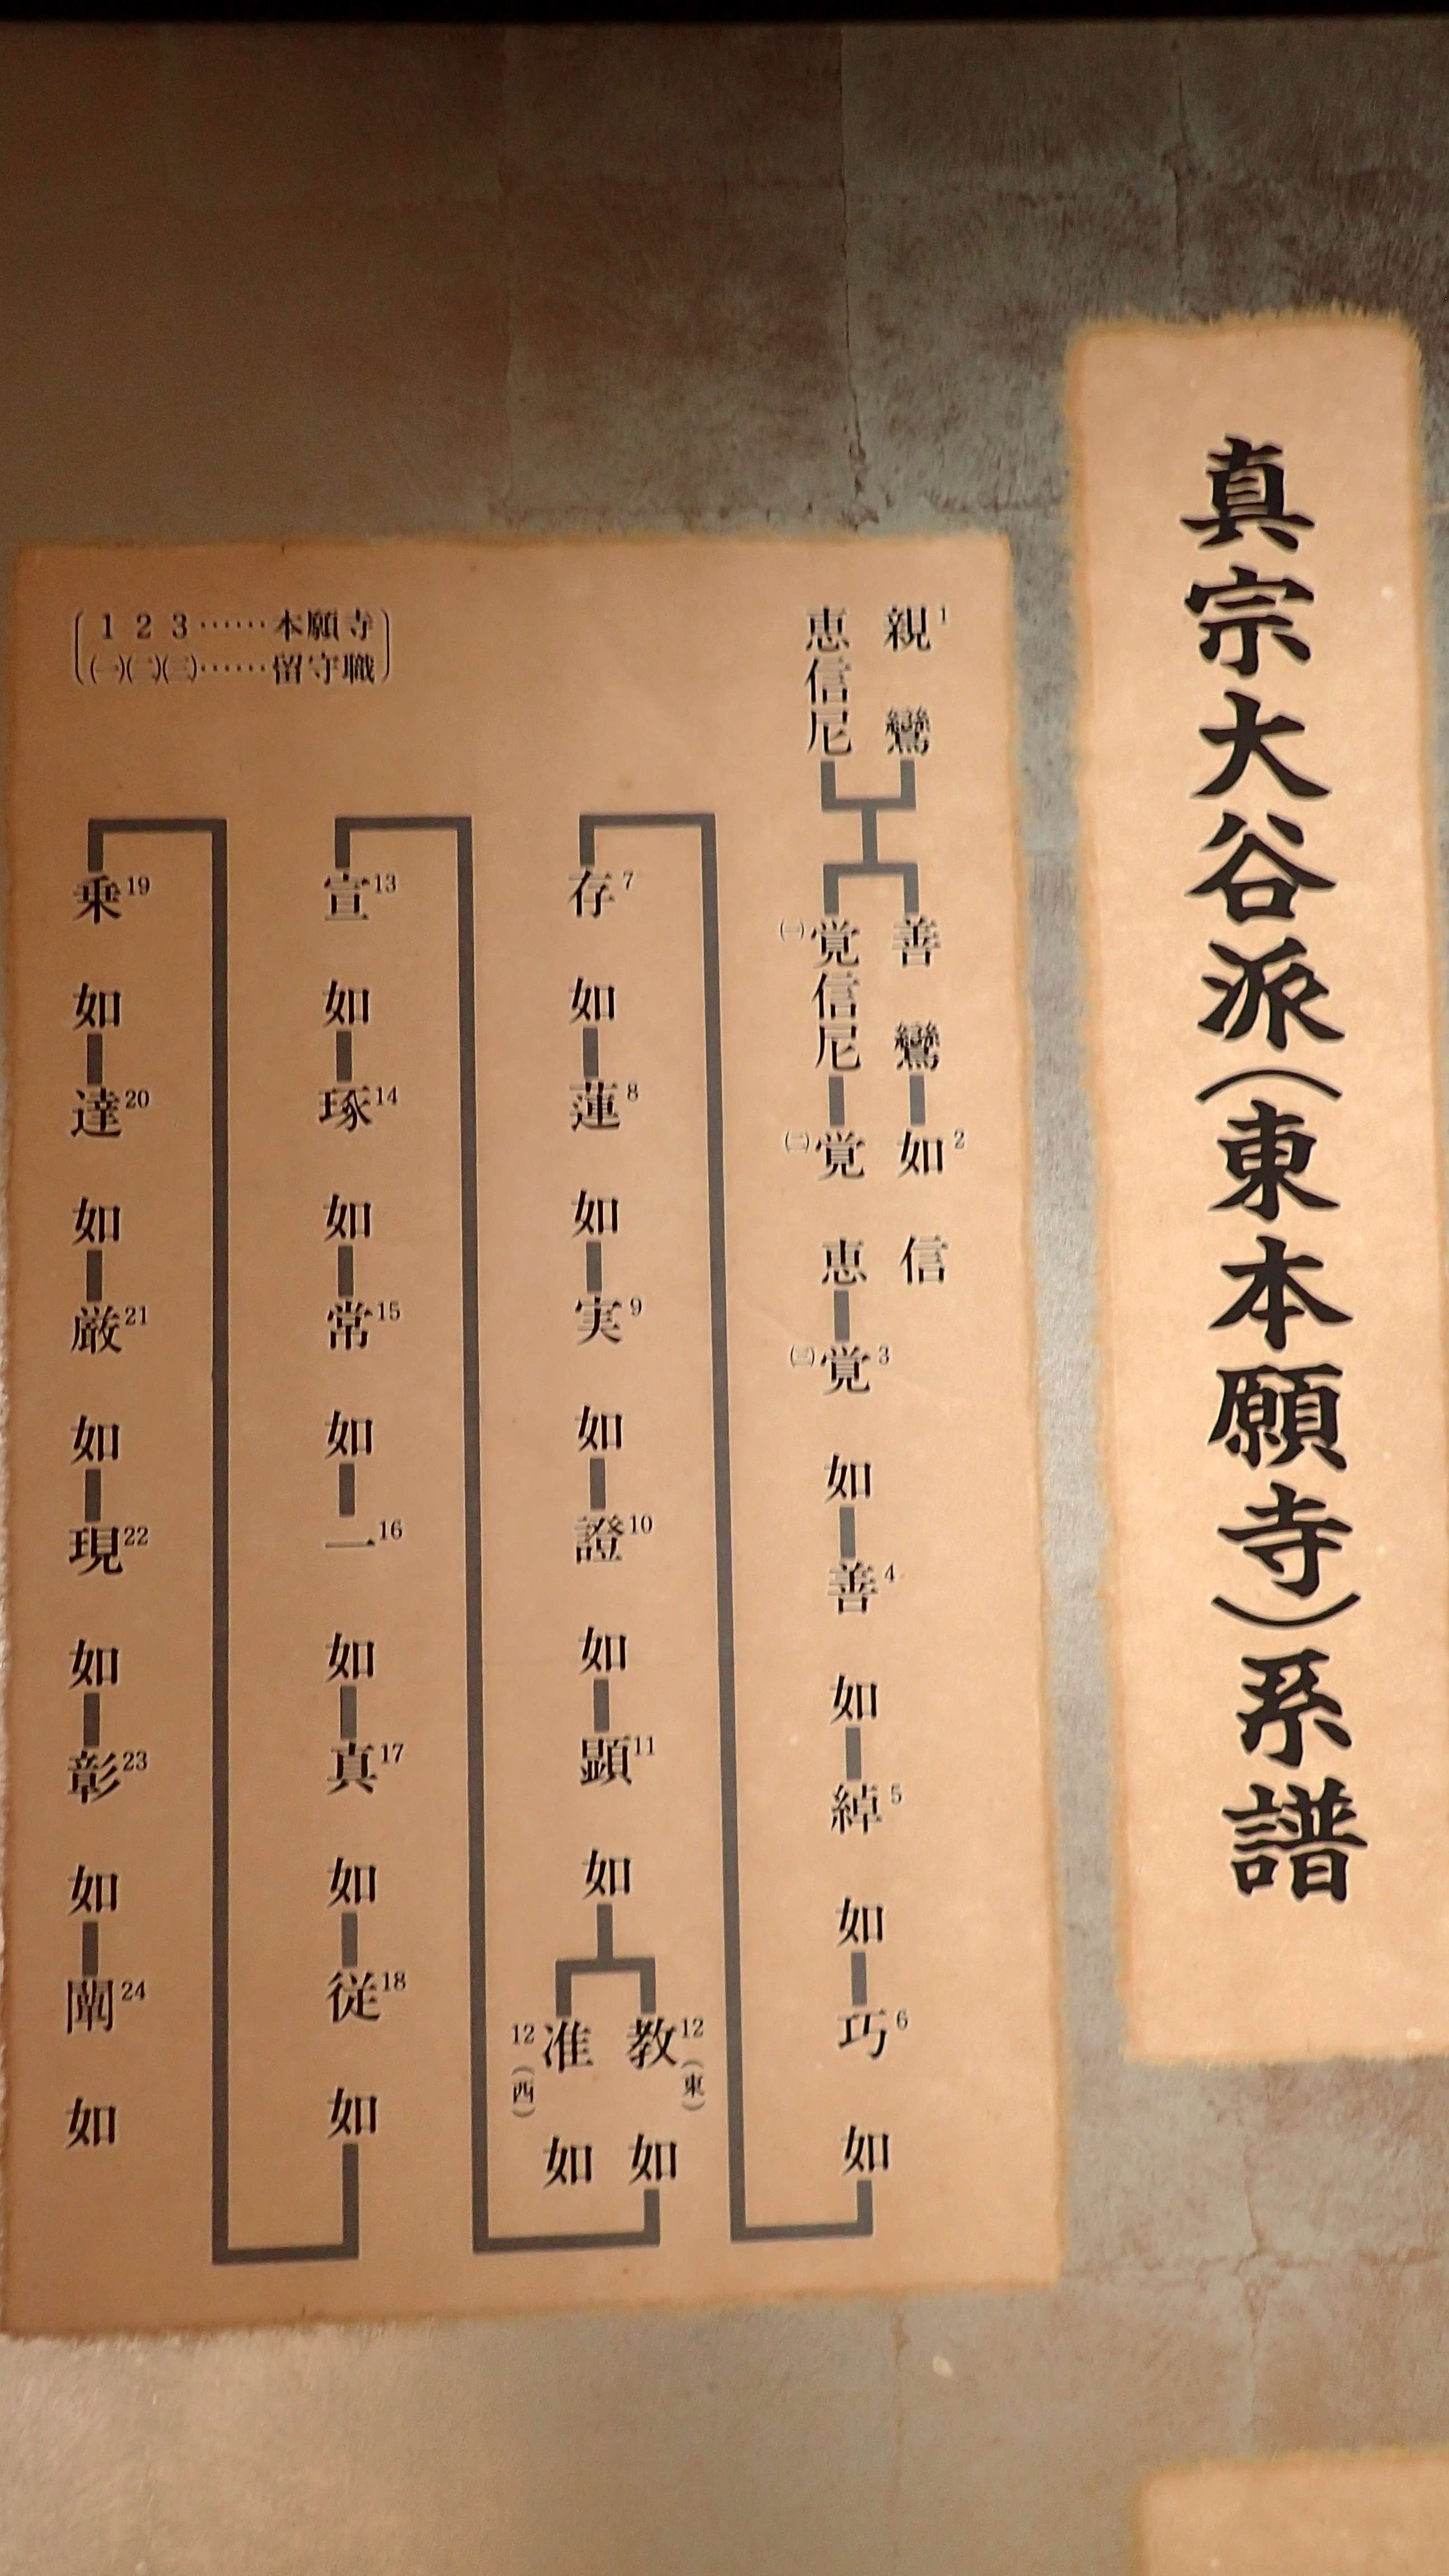 真宗大谷派(東本願寺)系譜
1親鸞
恵信尼
善鸞
2如信
(一)覚信尼
(二)覚恵
(三)覚如3
善如4
綽如5
巧如6
存如7
蓮如8
実如9
證如10
顕如11
教如12(東)
准如12(西)
宣如13
琢如14
常如15
一如16
真如17
従如18
乗如19
達如20
厳如21
現如22
彰如23
闡如24
1 2 3……本願寺
(一)(二)(三)……留守職